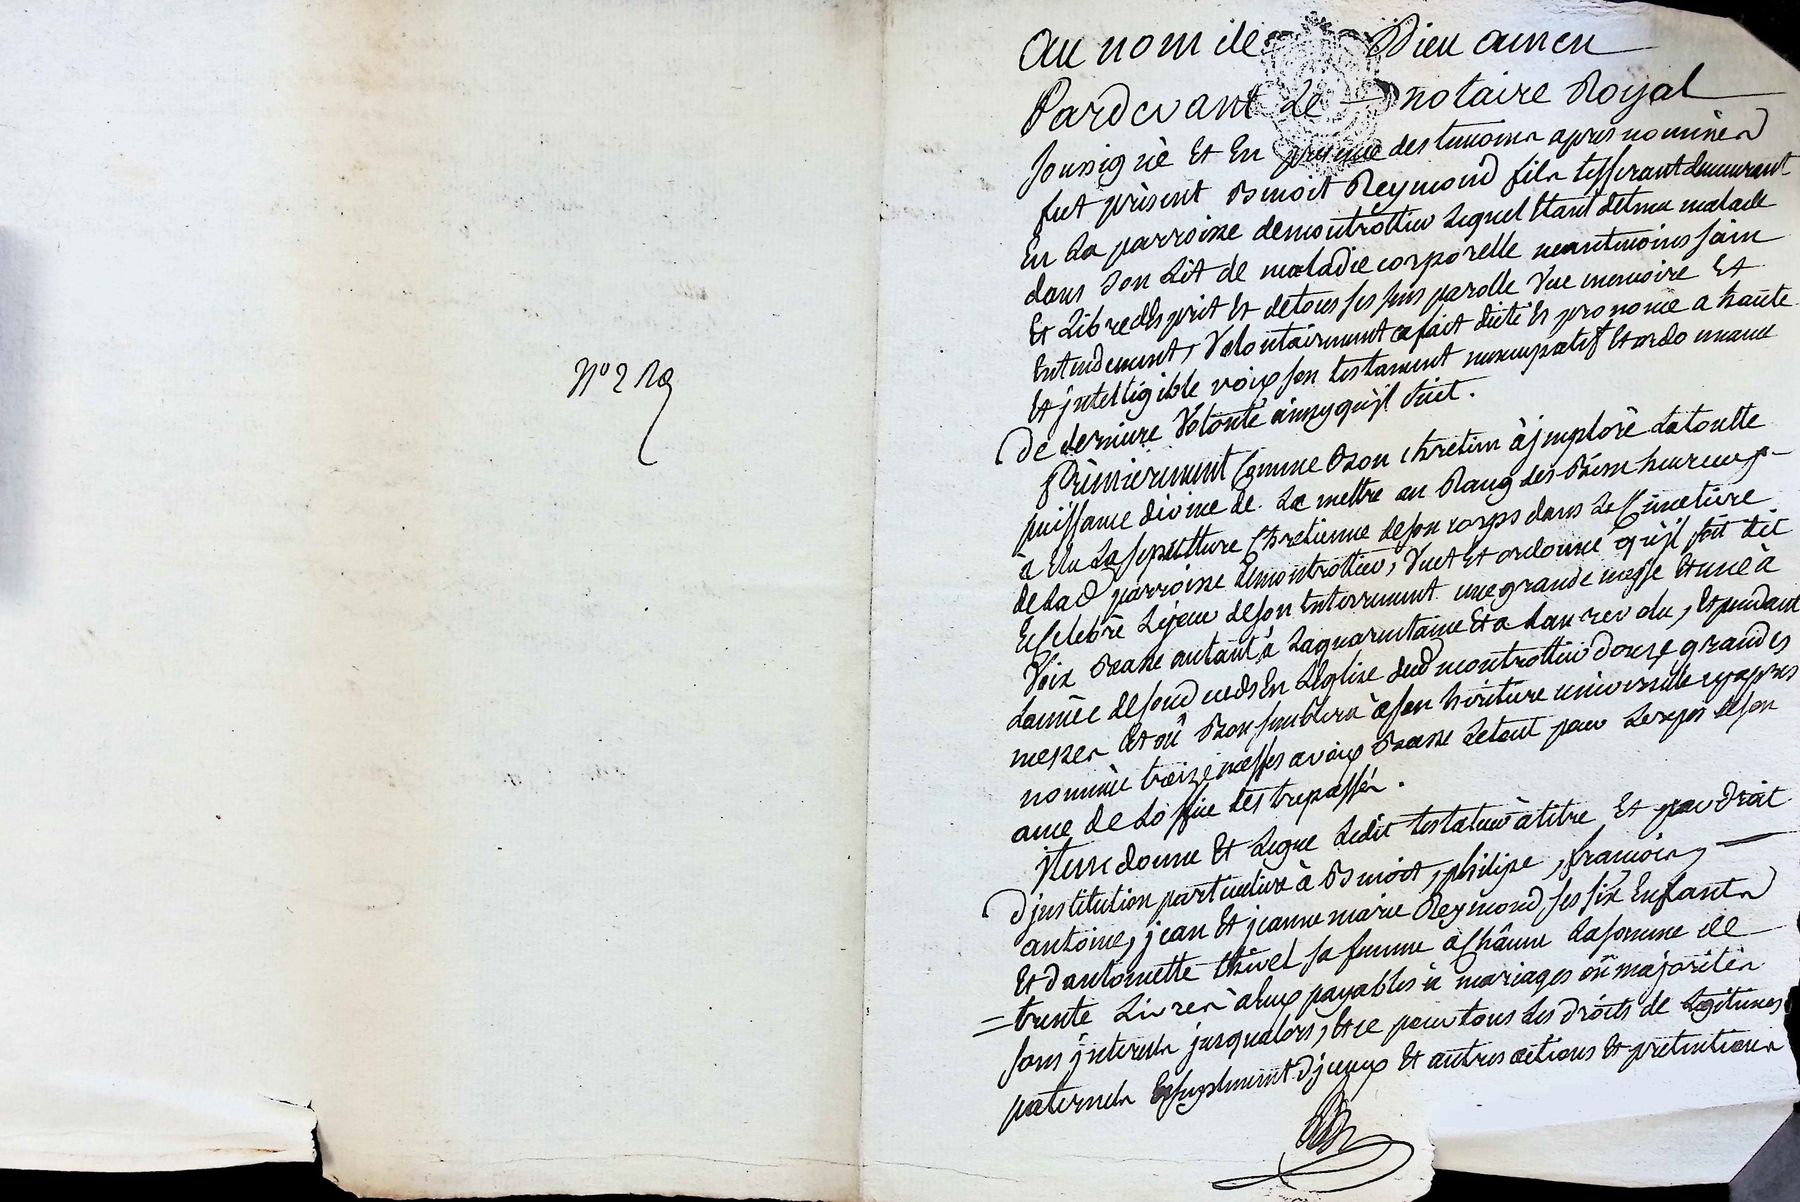 N° 2
Au nom de Dieu amen
Pardevant Le notaire Royal
soussigné Et En presence des temoins apres nommés
fut présent Benoit Reymond fils tisserant demeurant
En La parroisse demontrottier Lequel Etant detenu malade
dans son Lit de maladie corporelle neantmoins sain
Et Libre d'Esprit Et detous ses sens parolle Vue memoire Et
Entendement, Volontairement a fait dicté Et prononcé a haute
Et jntelligible voix son testament nuncupatif Et ordonnance
De derniere Volonté ainsy qu'jl suit.
Prèmierement Comme Bon chretien à jmploré La toutte
puissance divine de La mettre au Rang des Bienheureux
à Elu La sepulture Chretienne de son corps dans Le Cimetiere
de Lad parroisse demontrottier, Veut Et ordonne qu'jl soit dit
Et Celebré Lejour de son Enterrement une grande messe Et une à
Voix Basse autant à Laquarentaine Et a Lan revolu, Et pendant
Lannée de son deceds En Leglise dud montrottier douze grandes
messes Et où Bon semblera à son héritiere universelle cy apres
nommée treize messes a voix Basse Le tout pour Le repos de son
ame de Loffice des trepassés.
jtem donne Et Legue Ledit testateur à titre Et par droit
Djnstitution particuliere à Benoit, philipe, francois,
antoine, jean Et jeanne marie Reymond ses six Enfants
Et d'antoinette thivel sa femme a châcun La somme de
trente Livres à Eux payables à mariages oû majorités
sans jnterests jusqualors, Et ce pour tous Les droits de Legitimes
paternels Et suplement djceux Et autres actions Et pretentions